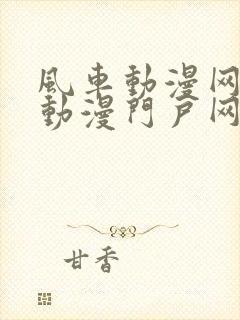 風車動漫网
動漫門戶网
甘香